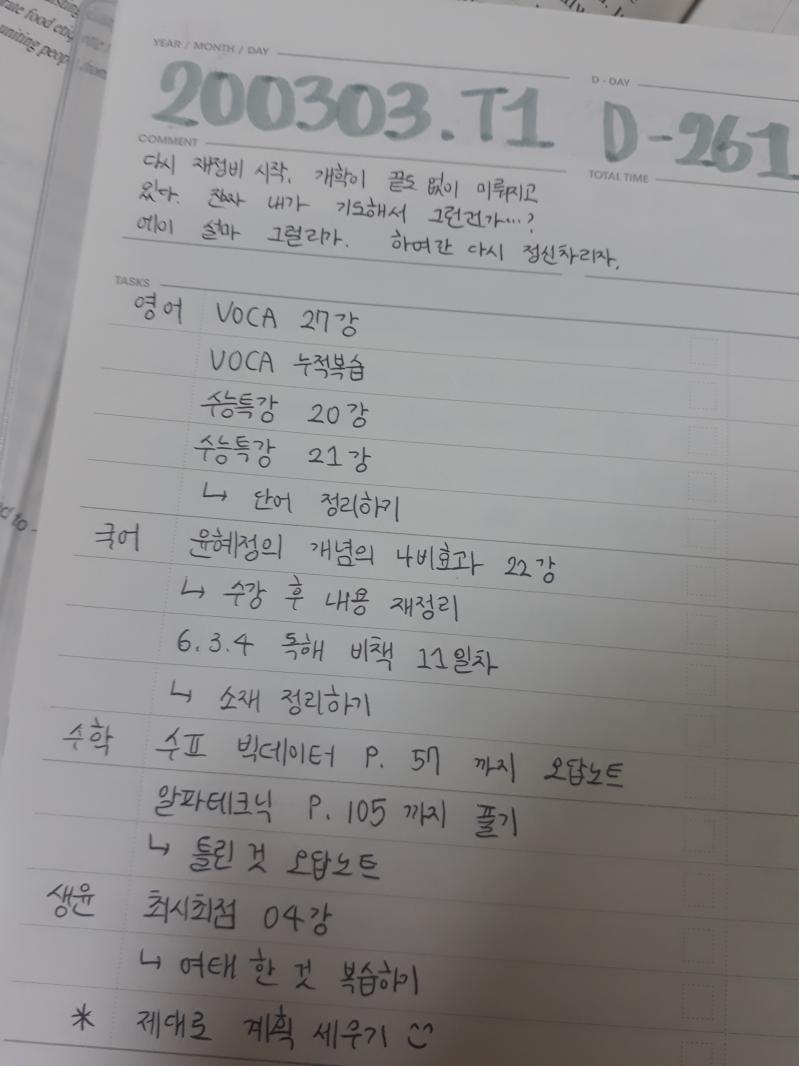 uniting people from
YEAR / MONTH / DAY
D - DAY
200303.T1
D-261
COMMENT
TOTAL TIME
다시 재정비 시작. 개학이 끝도 없이 미뤄지고
있다. 진짜 내가 기도해서 그런건가...?
에이 설마 그럴리가. 하여간 다시 정신차리자.
TASKS
영어 VOCA 27강
VOCA 누적복습
수능특강 20강
수능특강 21강
↳ 단어 정리하기
국어 윤혜정의 개념의 나비효과 22강
↳ 수강 후 내용 재정리
6.3.4 독해 비책 11일차
↳ 소재 정리하기
수학 수프 빅데이터 P. 57 까지 오답노트
알파테크닉 P. 105 까지 풀기
↳ 틀린 것 오답노트
생윤 최시최점 04강
↳ 여태 한 것 복습하기
* 제대로 계획 세우기